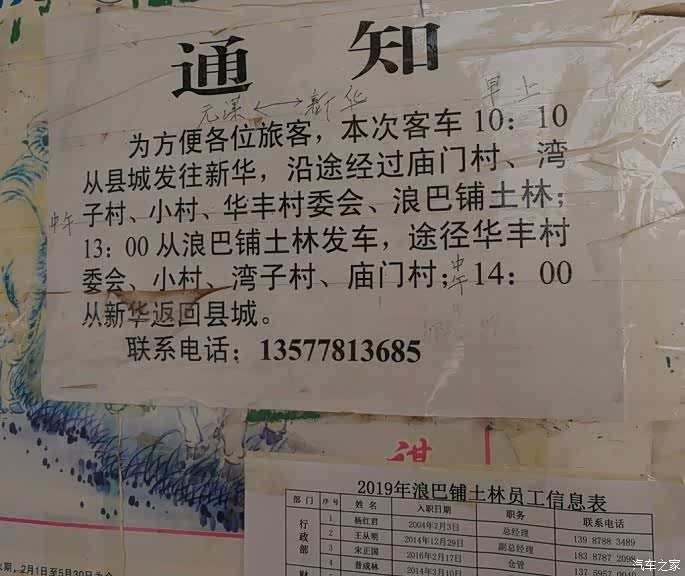 通知
元谋 ←→ 新华 早上
为方便各位旅客，本次客车10：10
从县城发往新华，沿途经过庙门村、湾
子村、小村、华丰村委会、浪巴铺土林；
中午
13：00从浪巴铺土林发车，途径华丰村
委会、小村、湾子村、庙门村；中午14：00
从新华返回县城。
联系电话：13577813685
2019年浪巴铺土林员工信息表
部门 序号 姓名 入职日期 职务 联系电话
行政部 1 杨红君 2004年7月3日 总经理 139 8788 3489
2 王从明 2014年12月29日 副总经理 183 8787 2098
3 宋正国 2016年2月17日 仓管 137 5957 0040
4 普成林 2014年3月10日
火期，2月1日至5月30日为
汽车之家